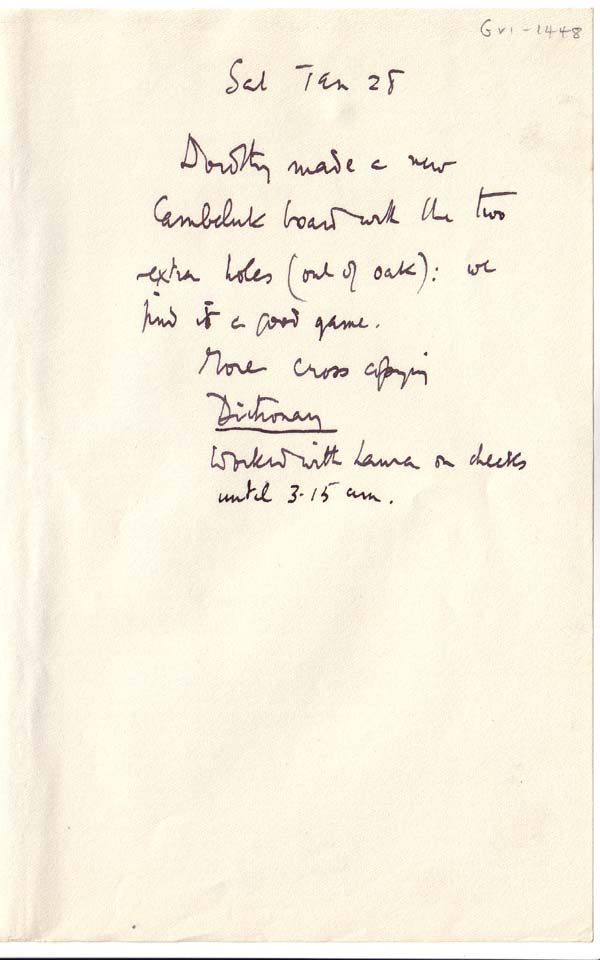 GVI-1448
Sat Jan 28
Dorothy made a new
Cambeluk board with the two
extra holes (out of oak): we
find it a good game.
More cross copying
Dictionary
Worked with Laura on checks
until 3.15 am.